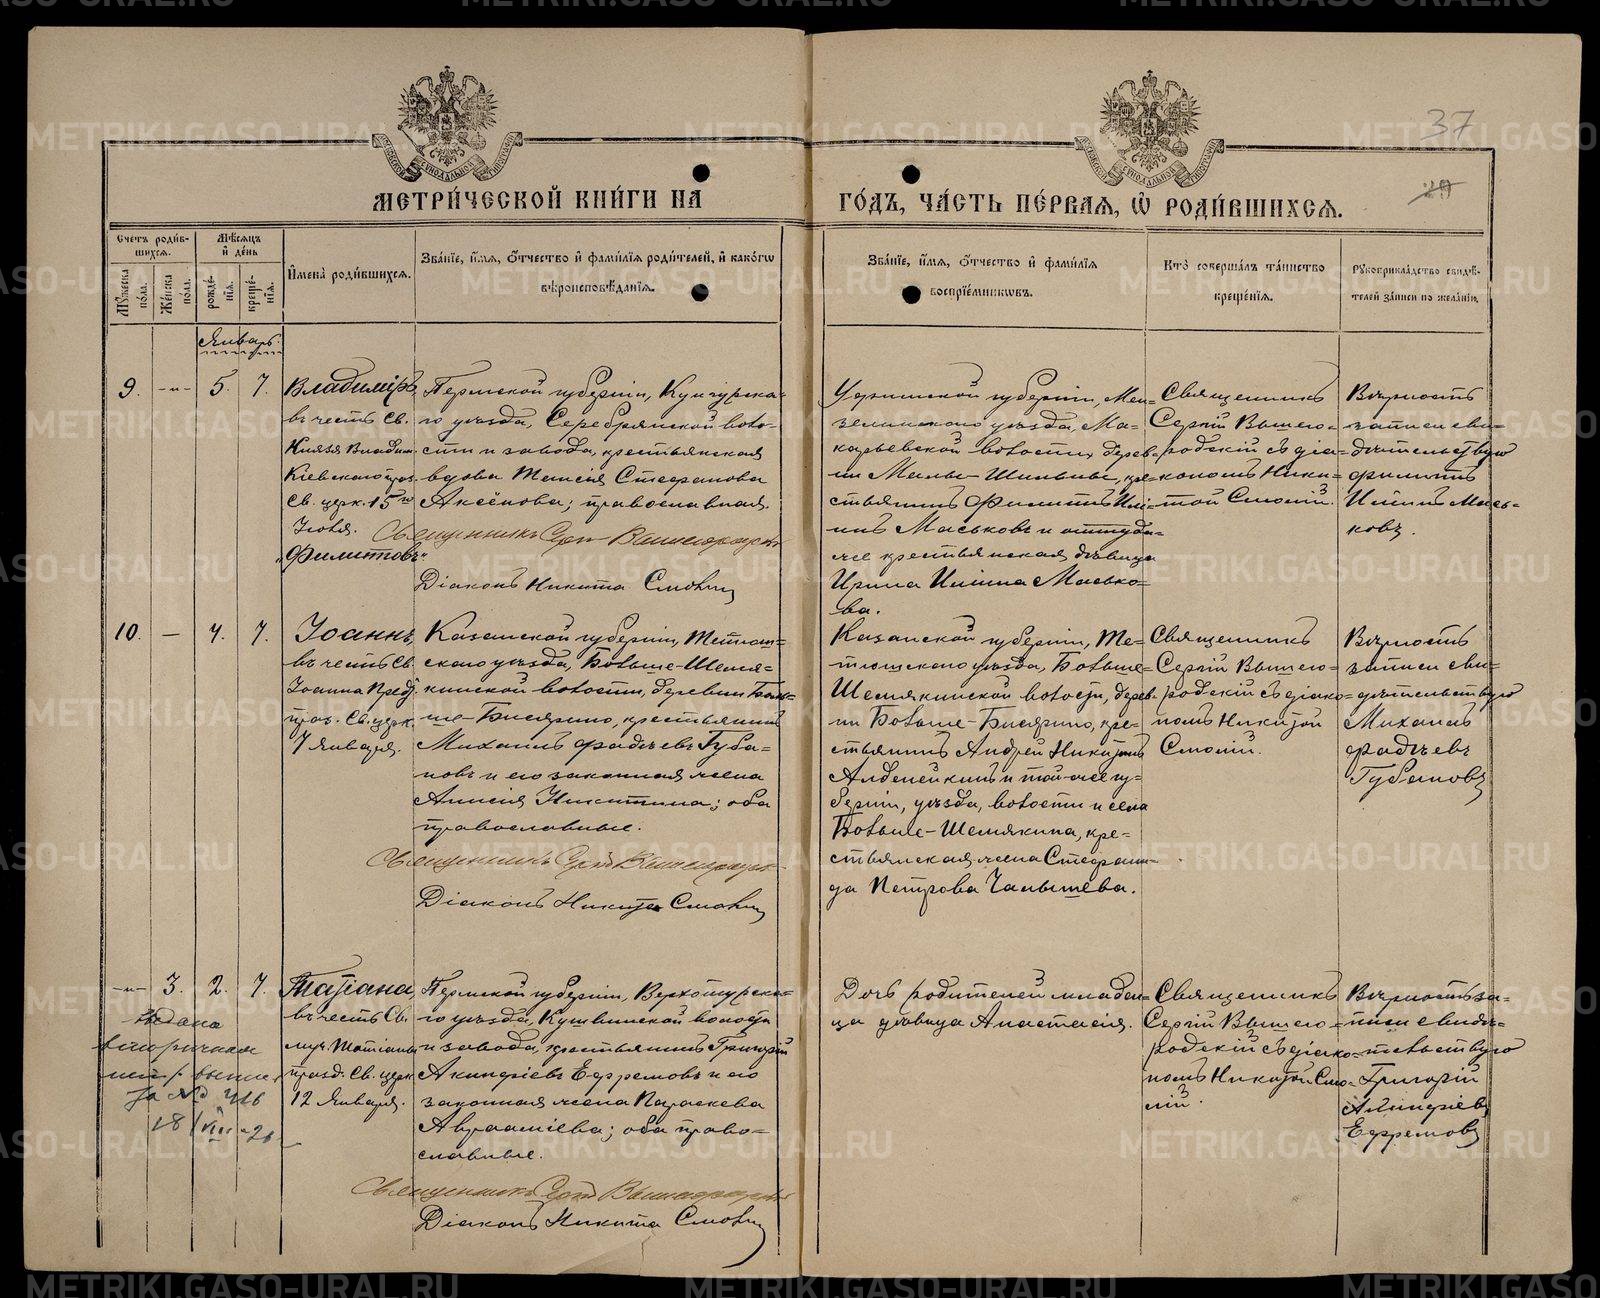 37
МЕТРИ́ЧЕСКОЙ КНИ́ГИ НА ГО́ДЪ, ЧА́СТЬ ПЕ́РВАЯ, Ѡ РОДИ́ВШИХСЯ.
Счетъ роди́вшихся.
Му́жеска по́ла.
Же́нска по́ла.
Мѣ́сяцъ и҆ де́нь
рожде́нїя.
креще́нїя.
И҆мена̀ роди́вшихся.
Зва́нїе, и҆́мя, ѻ҆́тчество и҆ фами́лїя роди́телей, и҆ како́гѡ
вѣроисповѣ́данїя.
Зва́нїе, и҆́мя, ѻ҆́тчество и҆ фами́лїя
воспрїе́мниковъ.
Кто̀ соверша́лъ та́инство
креще́нїя.
Рꙋкоприкла́дство свидѣ́-
телей за́писи по жела́нїю.
Январь.
9.
-"-
5.
7.
Владиміръ,
въ честь Св.
Князя Владим.
Кіевскаго праз.
Св. церк. 15го
Іюля.
„Филитовъ"
Пермской губерніи, Кунгурска-
го уѣзда, Серебрянской воло-
сти и завода, крестьянская
вдова Таисія Стефанова
Аксёнова; православная.
Священникъ Сергій Вышегородскій
Діаконъ Никита Смолій
Уфимской губерніи, Мен-
зелинскаго уѣзда, Ма-
карьевской волости, дерев-
ни Малы-Шильны, кре-
стьянинъ Филиппъ Иль-
инъ Маськовъ и оттуда-
же крестьянская дѣвица
Ирина Ильина Масько-
ва.
Священникъ
Сергій Вышего-
родскій съ діа-
кономъ Ники-
той Смолій.
Вѣрность
записи сви-
дѣтельствую
Филиппъ
Ильинъ Мась-
ковъ.
10.
—
4.
7.
Іоаннъ,
въ честь Св.
Іоанна Пред.
праз. Св. церк.
7 Января.
Казанской губерніи, Тетюш-
скаго уѣзда, Больше-Шемя-
кинской волости, деревни Боль-
ше-Бисярино, крестьянинъ
Михаилъ Фадѣевъ Губа-
новъ и его законная жена
Анисія Никитина; оба
православные.
Священникъ Сергій Вышегородскій
Діаконъ Никита Смолій
Казанской губерніи, Те-
тюшскаго уѣзда, Больше-
Шемякинской волости, дерев-
ни Больше-Бисярино, кре-
стьянинъ Андрей Никитинъ
и той-же гу-
берніи, уѣзда, волости и села
Больше-Шемякина, кре-
стьянская жена Стефани-
да Петрова Чалышева.
Священникъ
Сергій Вышего-
родскій съ діако-
номъ Никитой
Смолій.
Вѣрность
записи сви-
дѣтельствую
Михаилъ
Фадѣевъ
Губановъ
-"-
3.
2.
7.
Татіана,
въ честь Св.
муч. Татіаны
празд. Св. церк.
12 Января.
Пермской губерніи, Верхотурска-
го уѣзда, Кушвинской волости
и завода, крестьянинъ Григорій
Акиндіевъ Ефремовъ и его
законная жена Параскева
Авраамiева; оба право-
славные.
Священникъ Сергій Вышегородскій
Діаконъ Никита Смолій
Дочь родителей младен-
ца дѣвица Анастасія.
Священникъ
Сергій Вышего-
родскій съ діако-
номъ Никитой Смо-
лій.
Вѣрность за-
писи свидѣ-
тельствую
Григорій
Акиндіевъ
Ефремовъ
METRIKI.GASO-URAL.RU